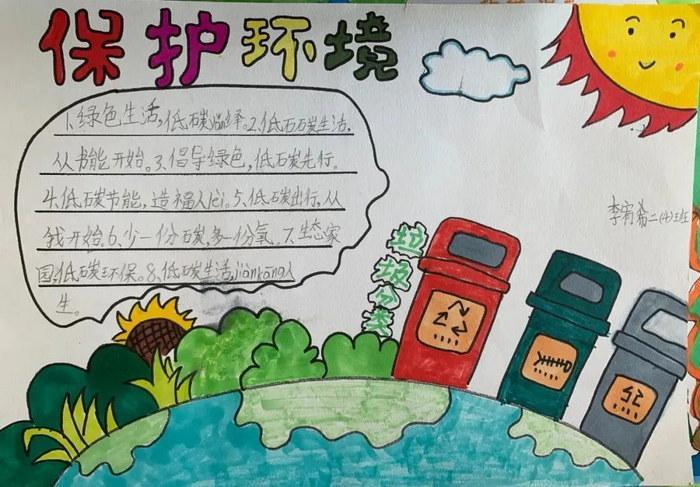 保护环境
1.绿色生活,低碳演绎。2.低石碳生活,
从节能开始。3.倡导绿色,低碳先行。
4.低碳节能,造福人们。5.低碳出行,从
我开始。6.少一份碳,多一份氧。7.生态家
园,低碳环保。8.低碳生活,jiànkāng人
生。
垃圾分类
李宥希二(4)班